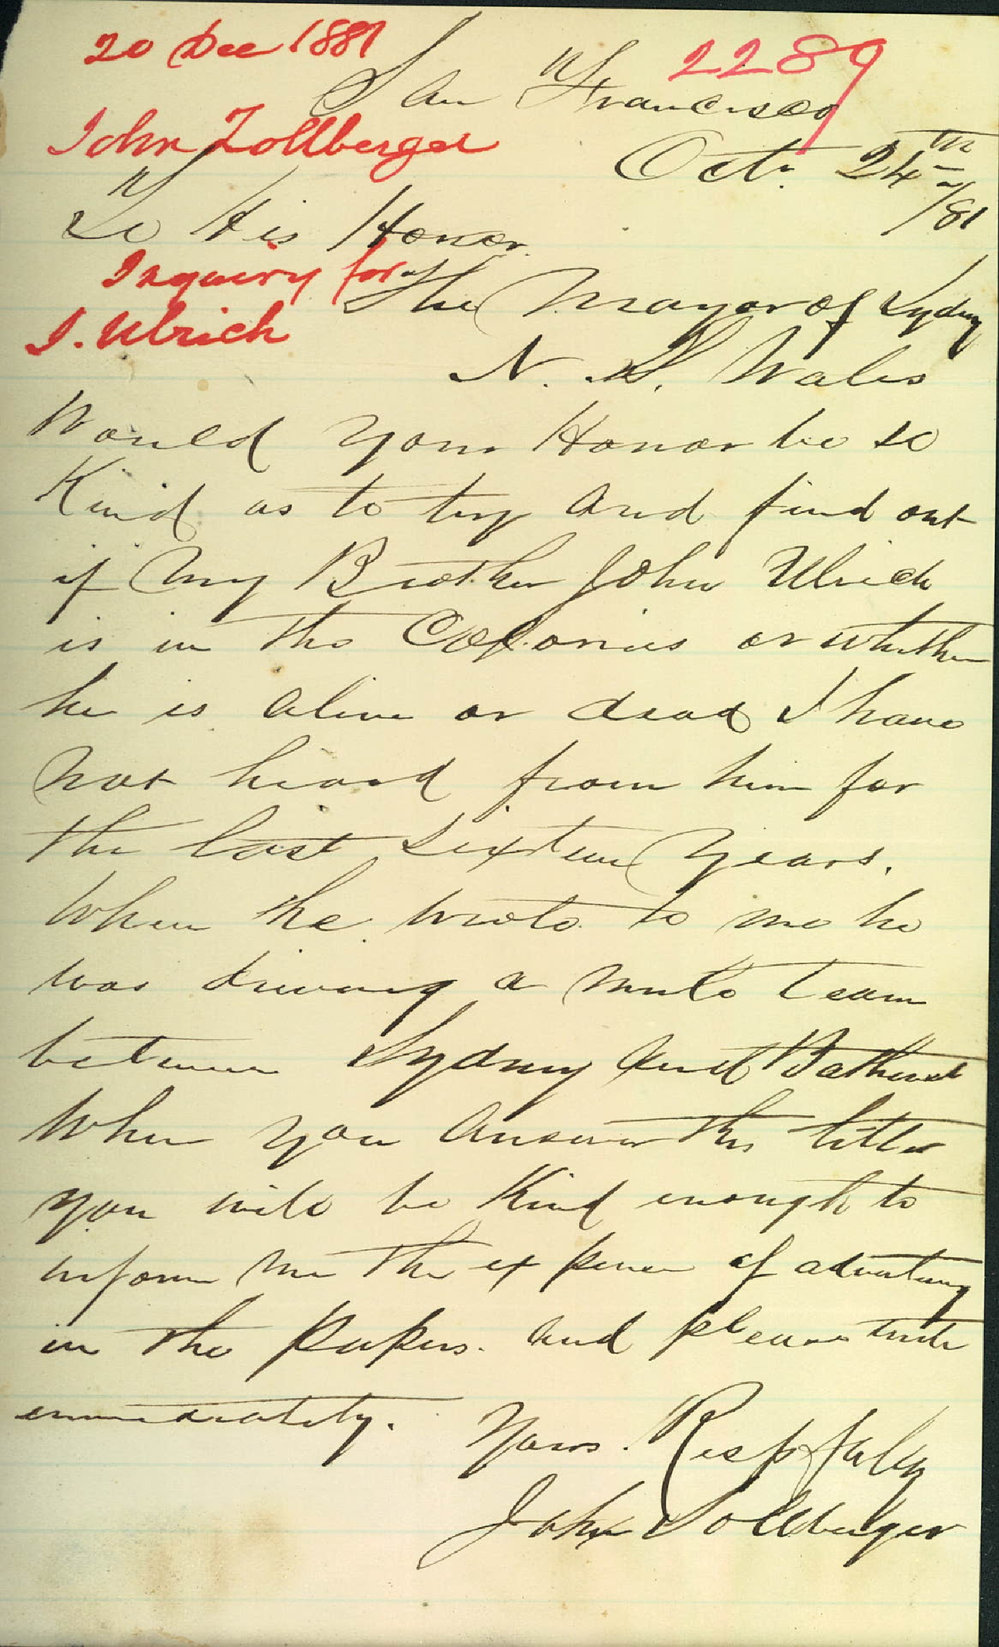 20 Dec 1881
2289
San Francisco
John Zollberger
Octr. 24th /81
To His Honor
Inquiry for
The Mayor of Sydney
J. Ulrich
N. S. Wales
Would your Honor be so
Kind as to try and find out
if my Brother John Ulrich
is in the Colonies or whether
he is alive or dead I have
not heard from him for
the last sixteen years.
When he wrote to me he
was driving a mule team
between Sydney and Bathurst
When you answer this letter
you will be Kind enough to
inform me the expence of advertising
in the Papers. and please write
immediately.
Yours. Respfuly
John Sollberger